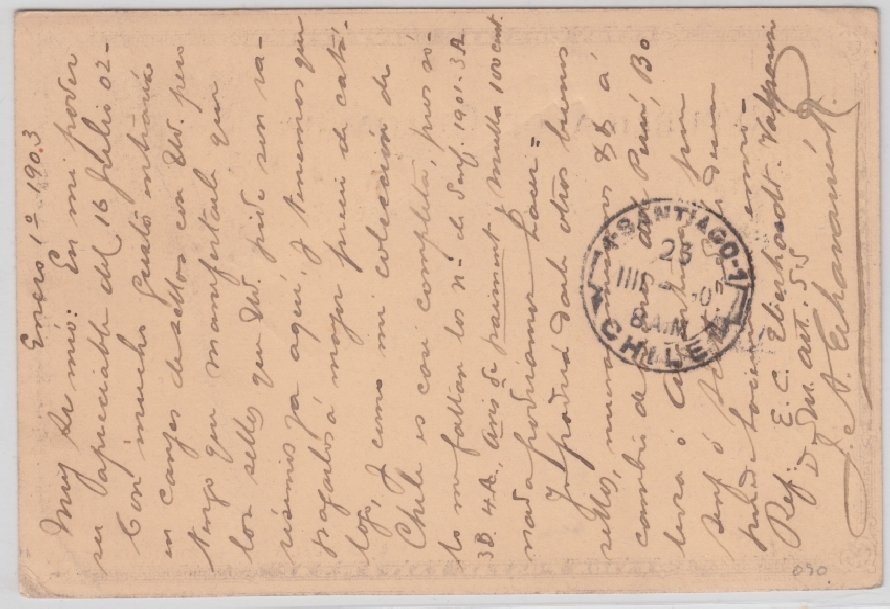 Enero 1º 1903
Muy Sr mio: En mi poder
su apreciable del 16 Julio 02-
Con mucho gusto entraria
en canjes de sellos con Ud. pero
tengo que manifestarle que
los sellos que Ud. pide son ra-
risimos ya aquí, y tenemos que
pagarlos á mayor precio de catá-
logo, y como mi coleccion de
Chile es casi completa, pues so-
lo me faltan los nº de Senf. 1901-3A
3B 4A, Avis de paiement y Multa 100 cent.
nada podriamos hacer=
Ud podrá darle otros buenos
sellos, nuevos á
cambio de del Perú, Bo
livia ó por
Senf ó
puede
Ref: E. C. Eberhardt. Valparaiso
D. M. art. 55
J. A.
SANTIAGO-1
23
III
8 AM
CHILE
090